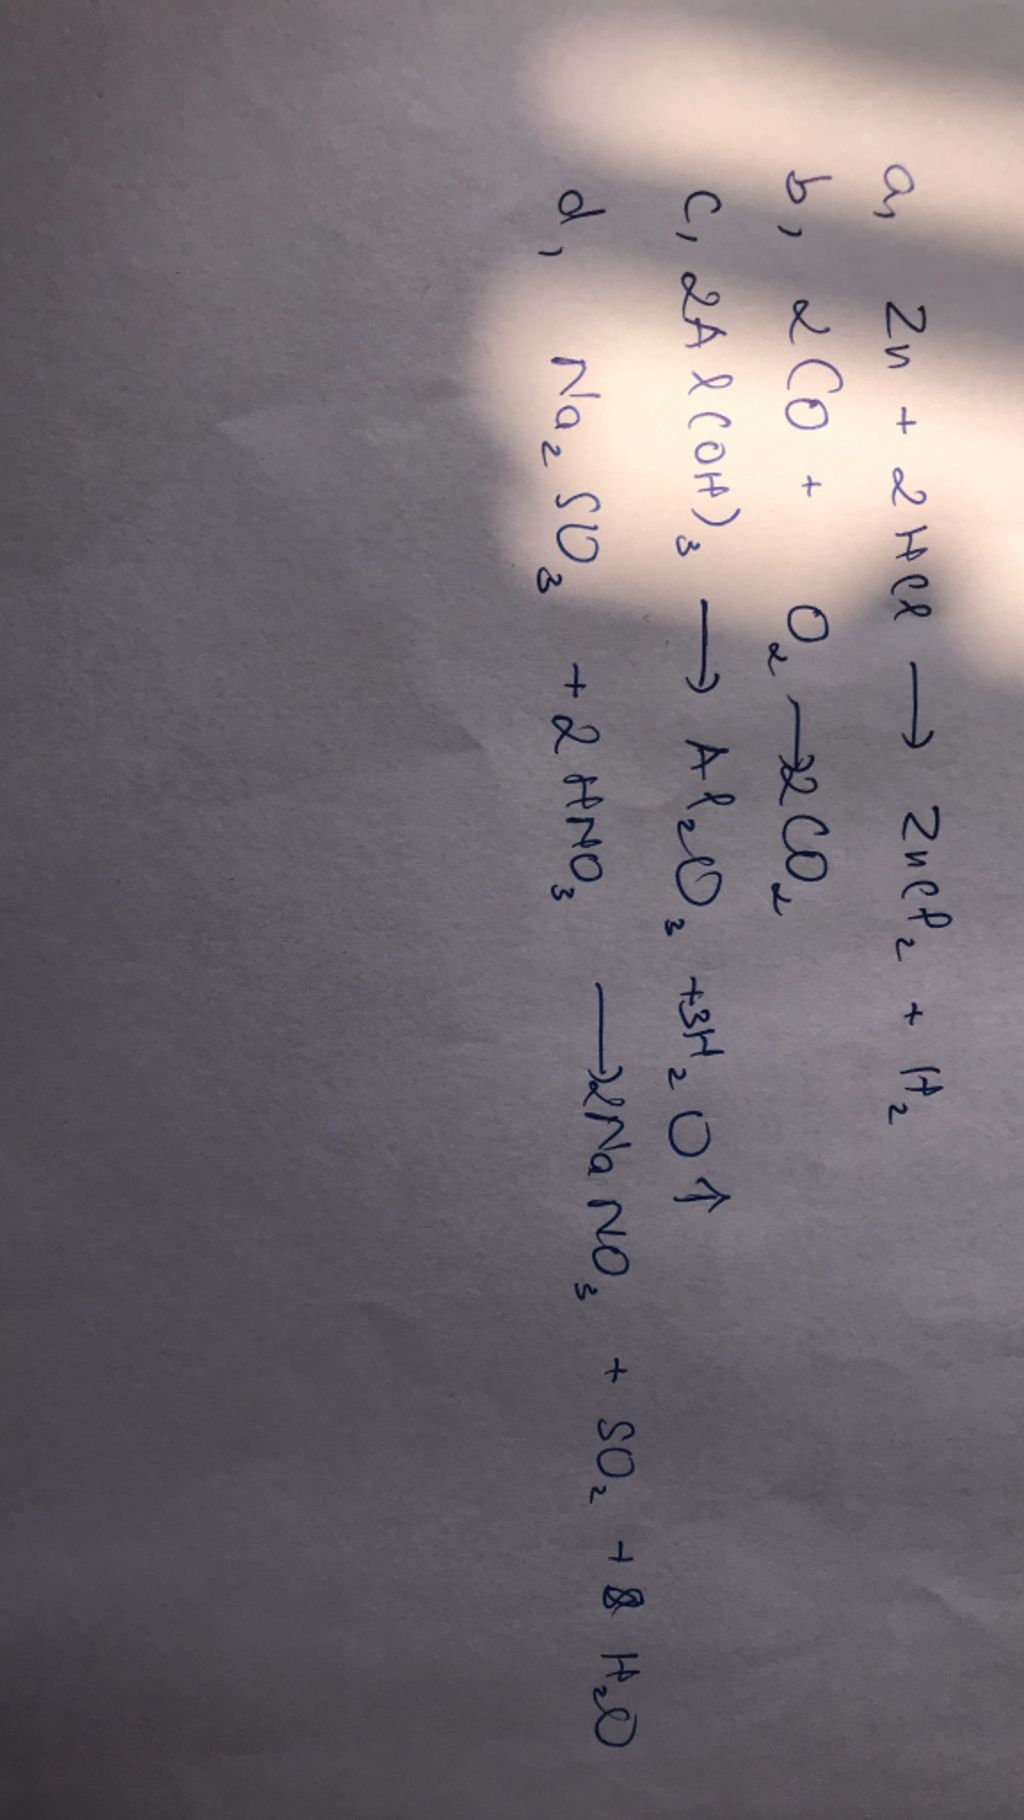 a, Zn + 2HCl → ZnCl₂ + H₂
b, 2CO + O₂ → 2CO₂
c, 2Al(OH)₃ → Al₂O₃ + 3H₂O ↑
d, Na₂SO₃ + 2HNO₃ → 2NaNO₃ + SO₂ + H₂O